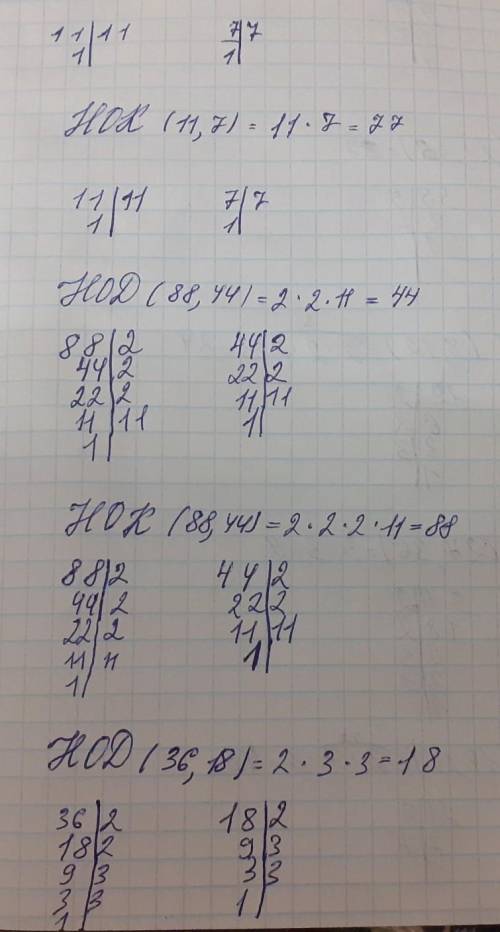 11|11 7|7
1| 1|
НОК (11,7) = 11·7 = 77
11|11 7|7
1| 1|
НОД (88,44) = 2·2·11 = 44
88|2 44|2
44|2 22|2
22|2 11|11
11|11 1|
1|
НОК (88,44) = 2·2·2·11 = 88
88|2 44|2
44|2 22|2
22|2 11|11
11|11 1|
1|
НОД (36,18) = 2·3·3 = 18
36|2 18|2
18|2 9|3
9|3 3|3
3|3 1|
1|